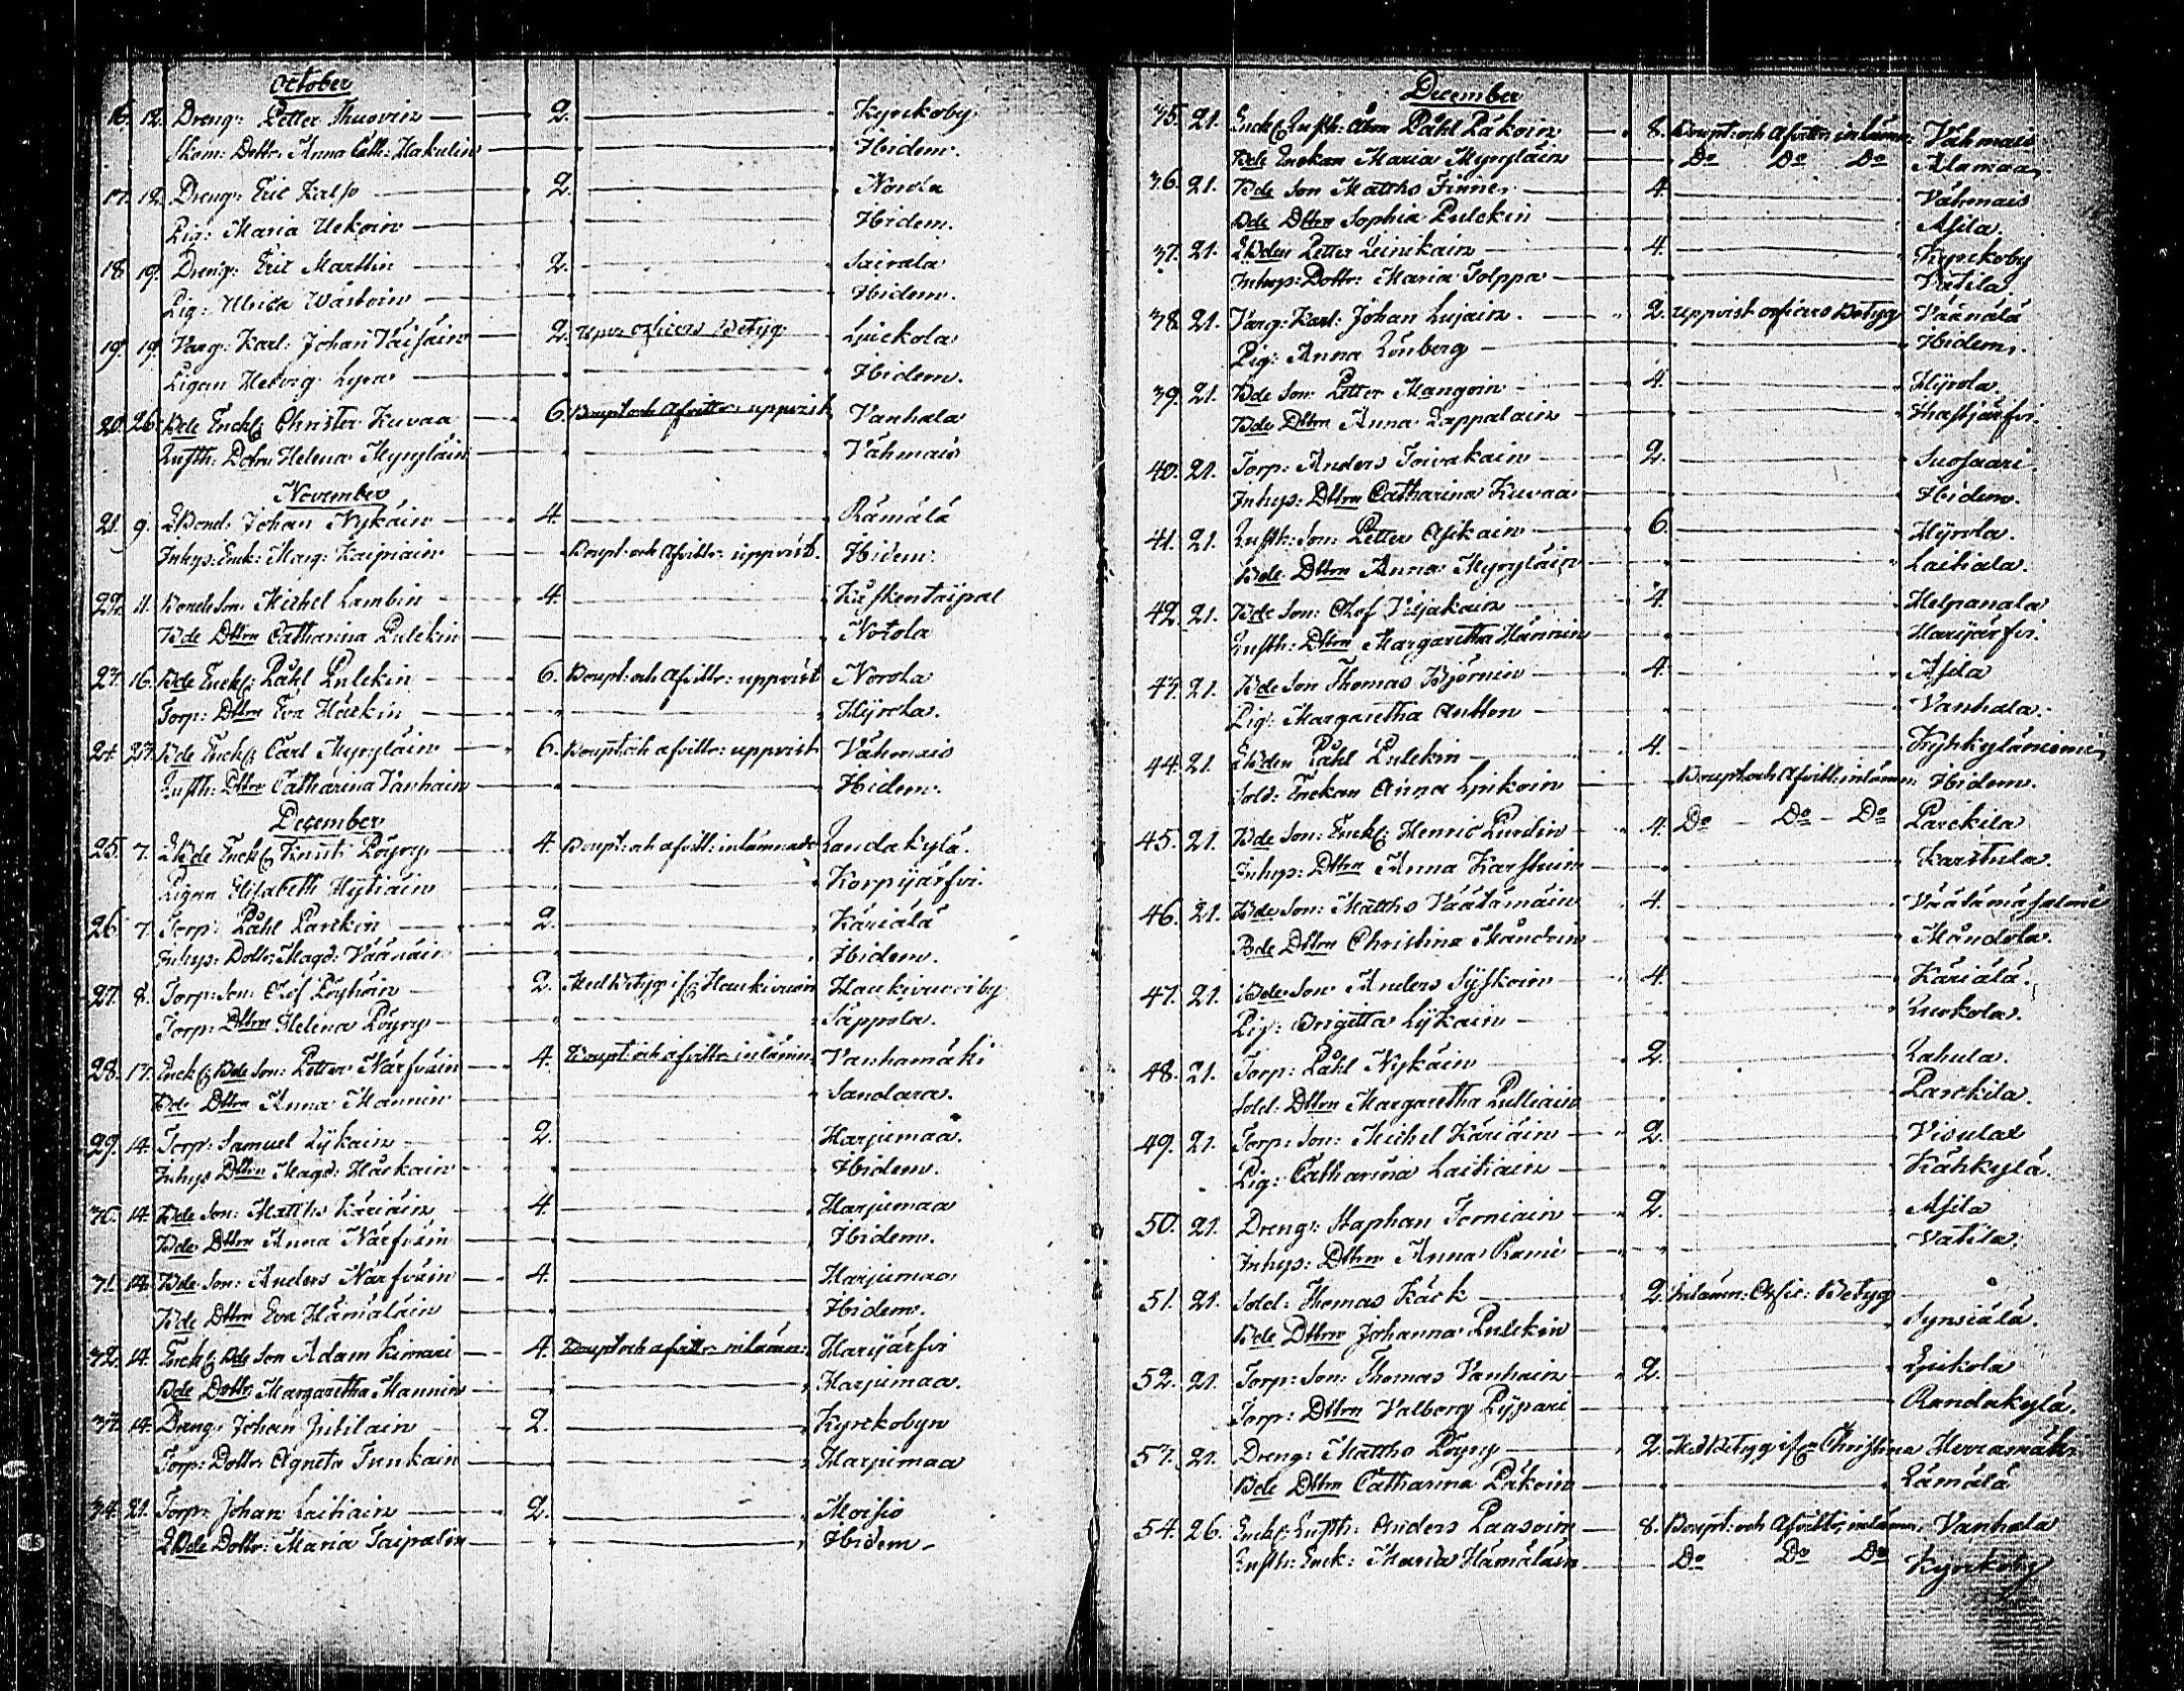 October
16. 12. Dreng: Petter Thuovin 2. Kyrckoby
Skom: Dottr: Anna Cath: Hakulin Ibidem.
17. 12. Dreng: Eric Kalso 2. Norola
Pig: Maria Uekoin Ibidem.
18. 19. Dreng: Eric Marttin 2. Sairala
Pig: Ulrica Ibidem.
19. 19. Varg: Karl: Johan Väisäin 2. Uppv: officers Betyg. Lyickola
Pigan Hedvig Lyra Ibidem.
20. 26. Bde Enckl: Christer Kuvaa 6. Boupt och Afvittr: uppvist Vanhala
Lusth: Dotr: Helena Myryläin Vähmais
November
21. 9. LBond: Johan Nykäin 4. Rämälä
Inhys: Enk: Marg: Kaipiain Boupt: och Afvittr: uppvist. Ibidem.
22. 11. Bonde Son Michel Lambin 4. Kuskentaipal
Bde Dttrn Catharina Pulckin Notola
23. 16. Bde Enckl: Påhl Pulckin 6. Boupt: och Afvittr: uppvist Norola
Torp: Dttrn Eva Häckin Hÿrola.
24. 23. Bde Enckl: Carl Myryläin 6. Boupt: och afvittr: uppvist Vähmais
Lusth: Dttrn Catharina Vanhain Ibidem.
December
25. 7. LBde Enckl: Knut Pöyry 4. Boupt: och afvitt: inlämnade Randakylä.
Pigan Elisabeth Hytiäin Korpijärfvi.
26. 7. Torp: Påhl Parckin 2. Käriälä
Inhys: Dottr: Magd: Väänäin Ibidem.
27. 8. Torp: Son: Olof Pöyhöin 2. Med Betyg if: Haukivuori Haukivuoriby
Torp: Dttrn Helena Pöyry Säppola.
28. 14. Enckl: Bde Son: Petter Närfväin 4. Boupt: och afvittr: inlämn: Vanhamäki
Bde Dttrn Anna Mannin Sandara.
29. 14. Torp: Samuel Lÿkain 2. Harjumaa.
Inhys Dttrn Magd: Häckain Ibidem.
30. 14. Bde Son: Matths Käriäin 4. Harjumaa
Bde Dttrn Anna Närfväin Ibidem.
31. 14. Bde Son: Anders Närfväin 4. Harjumaa
Bde Dttrn Eva Hämäläin Ibidem.
32. 14. Enckl: Bde Son Adam Kinnari 4. Boupt och afvittr: inlämn: Harijärfvi
Bde Dottr: Margaretha Mannin Harjumaa.
33. 14. Dreng: Johan Juhilain 2. Kyrckobyn
Torp: Dottr: Agneta Tunkain Harjumaa
34. 21. Torp: Johan Laitiain 2. Moisio
LBde Dottr: Maria Taipalin Ibidem
December
35. 21. Enckl: Lusth: Åbm Påhl Päkoin 8. Boupt: och Afvittr: inlämn: Vähmais
Bde Enckan Maria Myryläin Do Do Do Alamaa.
36. 21. Bde Son Matths Finne 4. Vähmais
Bde Dttrn Sophia Pulckin Asila.
37. 21. LBden Petter Leinikain 4. Kyrckoby
Inhys: Dottr: Maria Tolppa Vatila
38. 21. Varg: Karl: Johan Lujain. 2. uppvist officers Betyg Väänälä
Pig: Anna Lönberg Ibidem.
39. 21. Bde Son: Petter Mangoin 4. Hÿrola
Bde Dttrn Anna Lappalain Ihastjärfvi.
40. 21. Torp: Anders Toivakain 2. Suosaari.
Inhys: Dttrn Catharina Kuvaa Ibidem.
41. 21. Lusth: Son: Petter Asikain 6. Hÿrola.
Bde Dttrn Anna Myryläin Laitiala.
42. 21. Bde Son: Olof Viljakain 4. Helpanala
Lusth: Dttrn Margaretha Hännin Harijärfvi.
43. 21. Bde Son Thomas Björnin 4. Asila
Pig: Margaretha Antton Vanhala.
44. 21. LBden Påhl Pulckin 4. Kyhkyläniemi
Sold: Enckan Anna Lyikoin Boupt: och Afvitt: inlämn: Ibidem.
45. 21. Bde Son: Enckl: Henric Purdin 4. Do Do Do Parckila
Inhys: Dttrn Anna Karstuin Karstula.
46. 21. Bde Son: Matths Väätämäin 4. Väätämäsalmi
Bde Dttrn Christina Mändoin Mändola.
47. 21. Bde Son Anders Syskoin 4. Käriälä.
Pig: Brigitta Lÿkain
48. 21. Torp: Påhl Nykäin 2. Rahula.
Sold: Dttrn Margaretha Pulliain Parckila.
49. 21. Torp: Son: Michel Käriäin 2. Visulax
Pig: Catharina Laitiain Kähkylä.
50. 21. Dreng: Staphan Torniain 2. Asila
Inhys: Dttrn Anna Rami Vatila.
51. 21. Sold: Thomas Käck 2. Inlämn: Offic: Betyg
Bde Dttrn Johanna Pulckin Synsiälä.
52. 21. Torp: Son: Thomas Vanhain 2. Lyikola
Torp: Dttrn Valborg Pÿnari Randakylä.
53. 21. Dreng: Matths Pöyry 2. Med Betyg if: Christina Herramäki
Bde Dttrn Catharina Päkoin Rämälä
54. 26. Enckl: Lusth: Anders Paasoin 8. Boupt: och Afvittr: inlämn: Vanhala
Lusth: Enck: Maria Hämäläin Do Do Do Kyrckoby